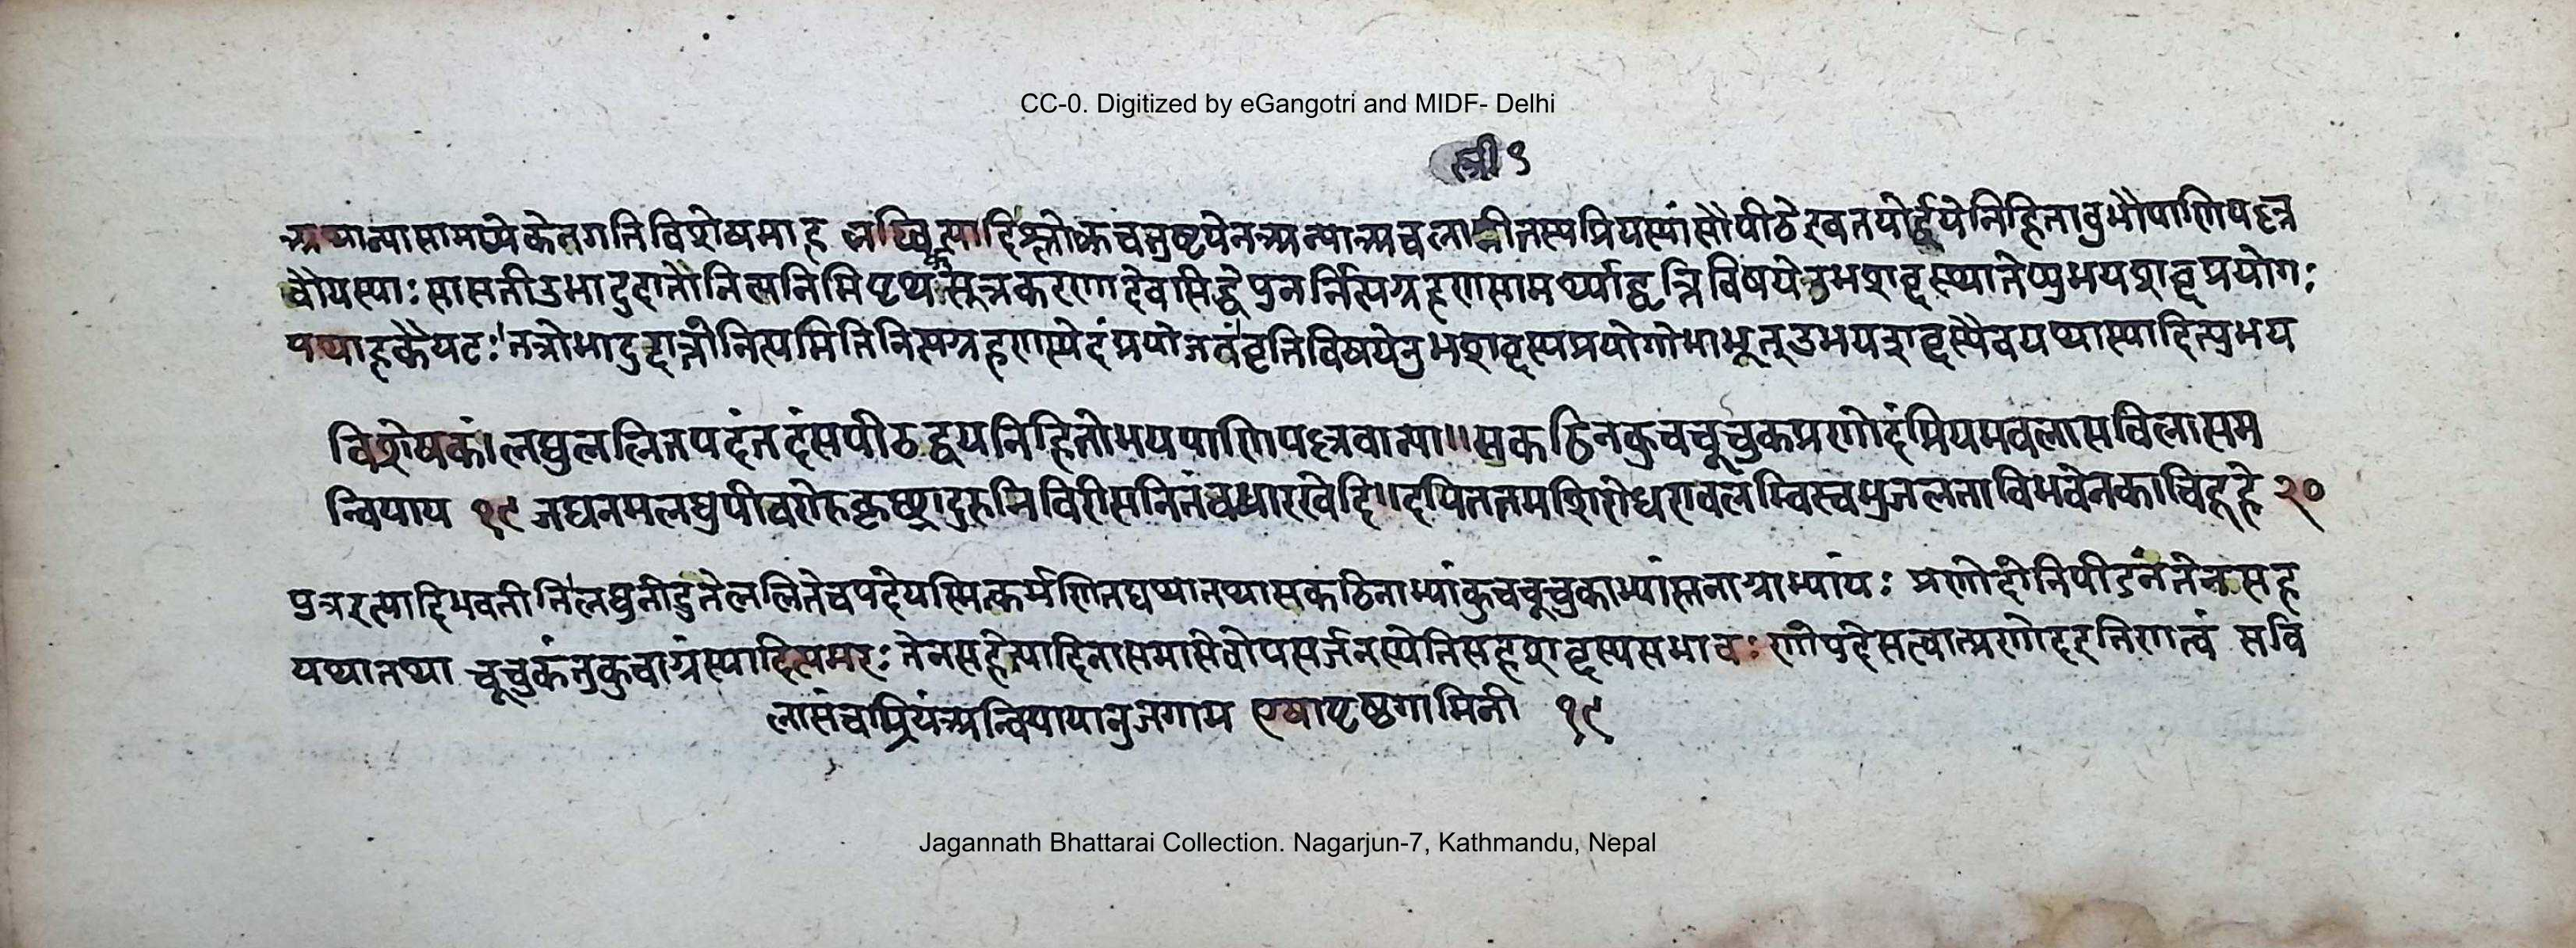 CC-0. Digitized by eGangotri and MIDF- Delhi
स्त्री ९
अथान्यासामप्येकेन गतिविशेषमाह लघ्वित्यादिश्लोकचतुष्टयेन अन्या अबला स्त्री तस्य प्रियस्यांसौ पीठे इव तयोर्द्वये निहितावुभौ पाणिपल्ल
वौ यस्याः सा सती उभादुदात्तो नित्यमिति पृथक्सूत्रकरणादेव सिद्धे पुनर्नित्यग्रहणसामर्थ्याद्वृत्तिविषये उभशब्दस्थानेप्युभयशब्दप्रयोगः
यथाह कैयटः तत्रोभादुदात्तो नित्यमिति नित्यग्रहणस्येदं प्रयोजनं वृत्तिविषये उभशब्दस्य प्रयोगो माभूत् उभयशब्दस्यैव यथा स्यादित्युभय
विशेषकं। लघुललितपदं तदंसपीठद्वयनिहितोभयपाणिपल्लवान्या॥ सकठिनकुचचूचुकप्रणोदं प्रियमबला सविलासम
न्वियाय १९ जघनमलघुपीवरोरु कृच्छ्रादुरुनिबिरीसनितंबभारखेदि॥ दयिततमशिरोधरावलम्बिस्वभुजलताविभवेन काचिदूहे २०
पुत्र इत्यादि भवतीति लघुनी द्रुते ललिते च पदे यस्मिन्कर्मणि तद्यथा तथा सकठिनाभ्यां कुचचूचुकाभ्यां स्तनाग्राभ्यां यः प्रणोदो निपीडनं तेन सह
यथा तथा चूचुकं तु कुचाग्रं स्यादित्यमरः तेन सहेत्यादिना समासे वोपसर्जनस्येति सहशब्दस्य सभावः णोपदेसत्वात्प्रणोद इति णत्वं सवि
लासं च प्रियं अन्वियायानुजगाम एषा पृष्ठगामिनी १९
Jagannath Bhattarai Collection. Nagarjun-7, Kathmandu, Nepal